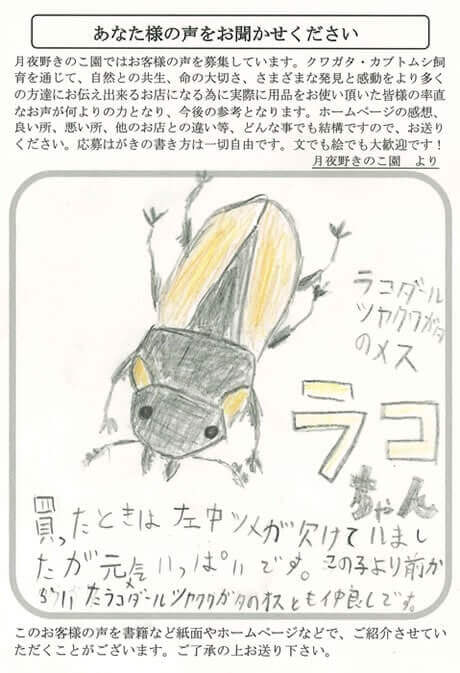 あなた様の声をお聞かせください
月夜野きのこ園ではお客様の声を募集しています。クワガタ・カブトムシ飼
育を通じて、自然との共生、命の大切さ、さまざまな発見と感動をより多く
の方達にお伝え出来るお店になる為に実際に用品をお使い頂いた皆様の率直
なお声が何よりの力となり、今後の参考となります。ホームページの感想、
良い所、悪い所、他のお店との違い等、どんな事でも結構ですので、お送り
ください。応募はがきの書き方は一切自由です。文でも絵でも大歓迎です！
月夜野きのこ園　より
ラコダール
ツヤクワガタ
のメス
ラコ
ちゃん
買ったときは左中ツメが欠けていまし
たが元気いっぱいです。この子より前か
らいたラコダールツヤクワガタのオスとも仲良しです。
このお客様の声を書籍など紙面やホームページなどで、ご紹介させてい
ただくことがございます。ご了承の上お送り下さい。